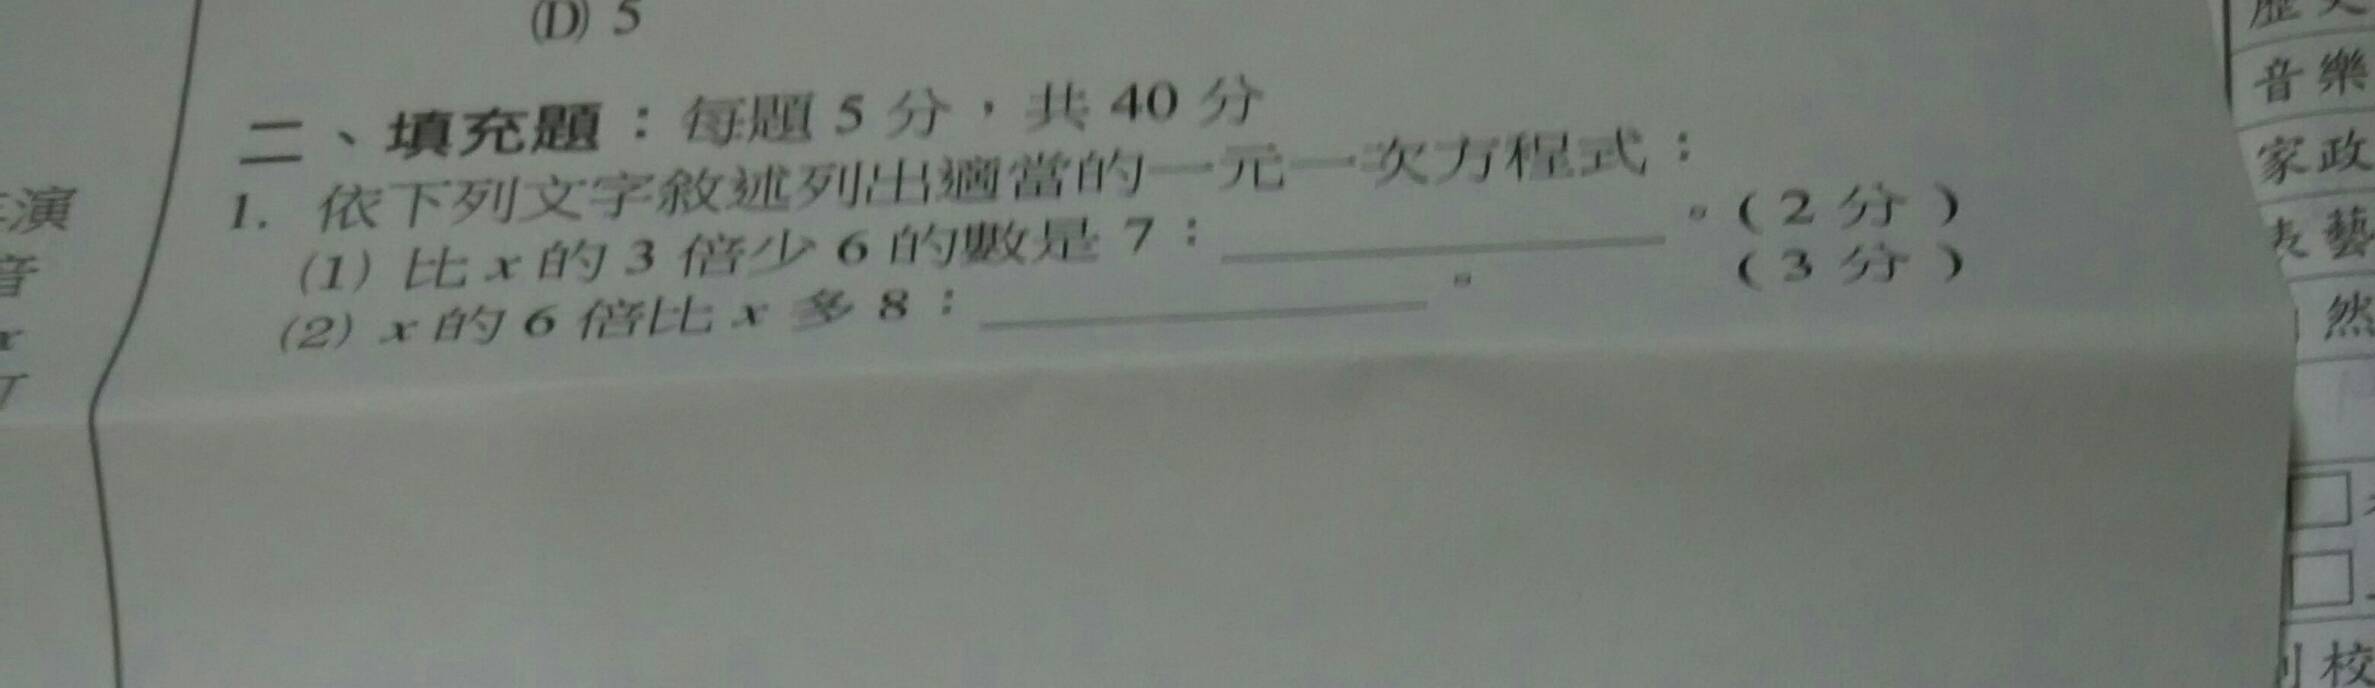 (D) 5
二、填充題：每題 5 分，共 40 分
1. 依下列文字敘述列出適當的一元一次方程式：
(1) 比 x 的 3 倍少 6 的數是 7：＿＿＿＿＿＿。(2 分)
(2) x 的 6 倍比 x 多 8：＿＿＿＿＿＿。 (3 分)
演
音
x
音樂
家政
表藝
然
校